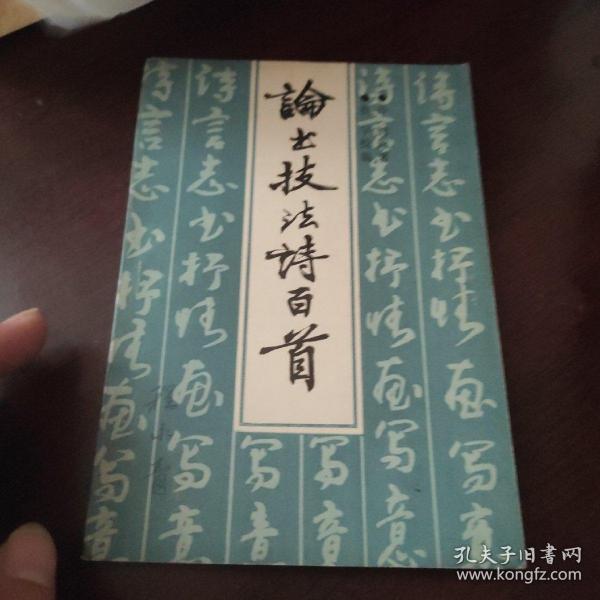 诗言志书抒情画写意
诗言志书抒情画写意
論书技法詩百首
写意
写意
诗言志书抒情画写意
诗言志书抒情画写意
孔夫子旧书网
www.kongfz.com